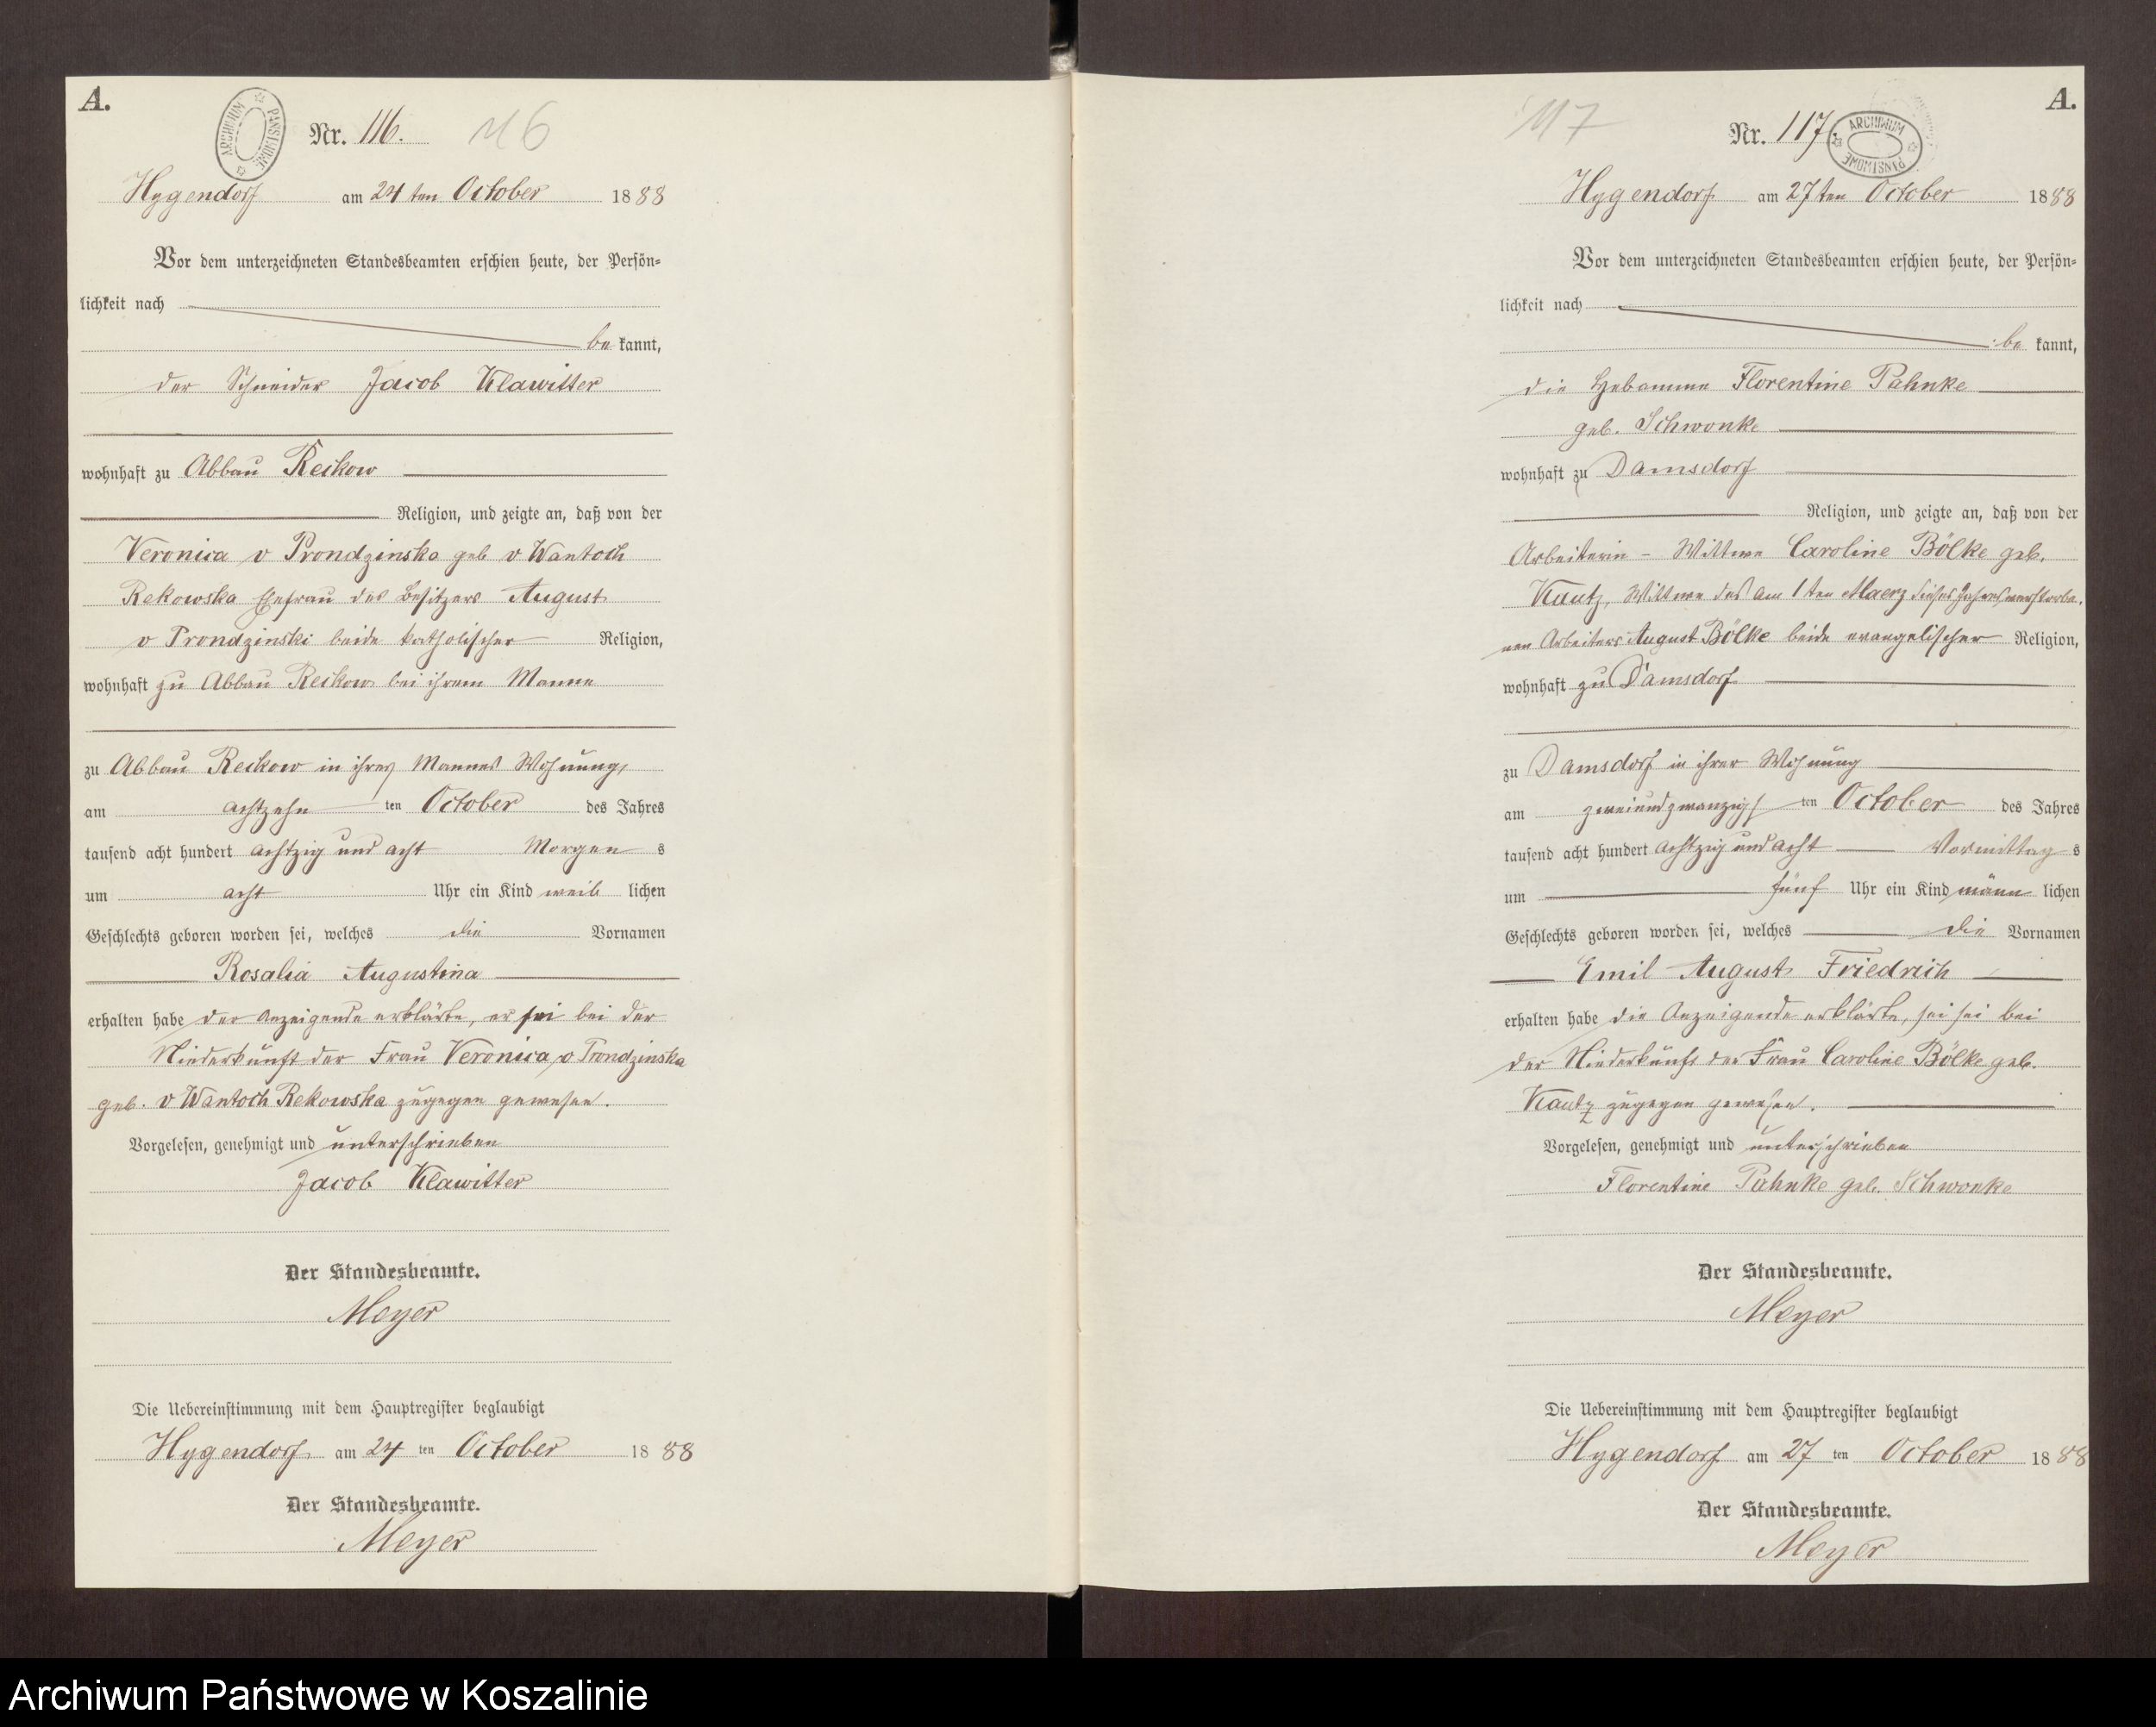 A.
ARCHIWUM PAŃSTWOWE
Nr. 116. 116
Hygendorf am 24ten October 1888
Vor dem unterzeichneten Standesbeamten erschien heute, der Persön-
lichkeit nach
be kannt,
der Schneider Jacob Klawitter
wohnhaft zu Abbau Reckow
Religion, und zeigte an, daß von der
Veronica v Prondzinska geb v Wantoch
Rekowska Ehefrau des Besitzers August
v Prondzinski beide katholischer Religion,
wohnhaft zu Abbau Reckow bei ihrem Manne
zu Abbau Reckow in ihres Mannes Wohnung,
am achtzehn ten October des Jahres
tausend acht hundert achtzig und acht Morgen s
um acht Uhr ein Kind weib lichen
Geschlechts geboren worden sei, welches die Vornamen
Rosalia Augustina
erhalten habe der Anzeigende erklärte, er sei bei der
Niederkunft der Frau Veronica v Prondzinska
geb. v Wantoch Rekowska zugegen gewesen.
Vorgelesen, genehmigt und unterschrieben
Jacob Klawitter
Der Standesbeamte.
Meyer
Die Uebereinstimmung mit dem Hauptregister beglaubigt
Hygendorf am 24 ten October 1888
Der Standesbeamte.
Meyer
A.
117 Nr. 117
ARCHIWUM PAŃSTWOWE
Hygendorf am 27ten October 1888
Vor dem unterzeichneten Standesbeamten erschien heute, der Persön-
lichkeit nach
be kannt,
die Hebamme Florentine Pahnke
geb. Schwonke
wohnhaft zu Damsdorf
Religion, und zeigte an, daß von der
Arbeiterin - Wittwe Caroline Bölke geb.
Kautz, Wittwe des am 1ten Maerz dieses Jahres verstorbe-
nen Arbeiters August Bölke beide evangelischer Religion,
wohnhaft zu Damsdorf
zu Damsdorf in ihrer Wohnung
am zweiundzwanzigs ten October des Jahres
tausend acht hundert achtzig und acht Vormittag s
um fünf Uhr ein Kind männ lichen
Geschlechts geboren worden sei, welches die Vornamen
Emil August Friedrich
erhalten habe die Anzeigende erklärte, sei sei bei
der Niederkunft der Frau Caroline Bölke geb.
Kautz zugegen gewesen.
Vorgelesen, genehmigt und unterschrieben
Florentine Pahnke geb. Schwonke
Der Standesbeamte.
Meyer
Die Uebereinstimmung mit dem Hauptregister beglaubigt
Hygendorf am 27 ten October 1888
Der Standesbeamte.
Meyer
Archiwum Państwowe w Koszalinie